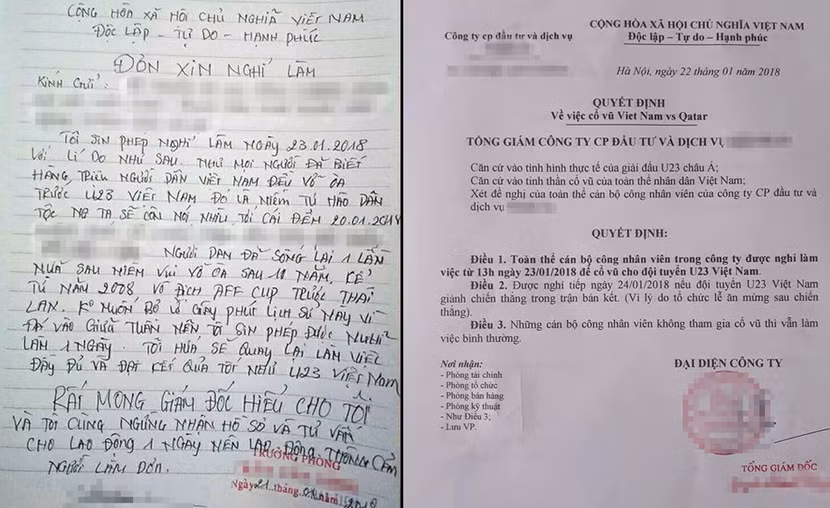 CỘNG HÒA XÃ HỘI CHỦ NGHĨA VIỆT NAM
ĐỘC LẬP - TỰ DO - HẠNH PHÚC
ĐƠN XIN NGHỈ LÀM
KÍNH GỬI:
TÔI SIN PHÉP NGHỈ LÀM NGÀY 23.01.2018
VỚI LÍ DO NHƯ SAU. NHƯ MỌI NGƯỜI ĐÃ BIẾT
HÀNG TRIỆU NGƯỜI DÂN VIỆT NAM ĐỀU VỠ ÒA
TRƯỚC U23 VIỆT NAM ĐÓ LÀ NIỀM TỰ HÀO DÂN
TỘC NG TA SẼ CÒN NÓI NHIỀU TỚI CÁI ĐÊM 20.01.2018
NGƯỜI DÂN ĐÃ SỐNG LẠI 1 LẦN
NỮA SAU NIỀM VUI VỠ ÒA SAU 10 NĂM, KỂ
TỪ NĂM 2008 VÔ ĐỊCH AFF CUP TRƯỚC THÁI
LAN. KO MUỐN BỎ LỠ GIÂY PHÚT LỊCH SỬ NÀY VÌ
ĐÁ VÀO GIỮA TUẦN NÊN TÔI SIN PHÉP ĐƯỢC NGHỈ
LÀM 1 NGÀY. TÔI HỨA SẼ QUAY LẠI LÀM VIỆC
ĐẦY ĐỦ VÀ ĐẠT KẾT QUẢ TỐT NẾU U23 VIỆT NAM
RẤT MONG GIÁM ĐỐC HIỂU CHO TÔI
VÀ TÔI CŨNG NGỪNG NHẬN HỒ SƠ VÀ TƯ VẤN
CHO LAO ĐỘNG 1 NGÀY NÊN LAO ĐỘNG THÔNG CẢM
NGƯỜI LÀM ĐƠN.
TRƯỞNG PHÒNG
Ngày 21 tháng 01 năm 2018
Công ty cp đầu tư và dịch vụ
CỘNG HÒA XÃ HỘI CHỦ NGHĨA VIỆT NAM
Độc lập – Tự do – Hạnh phúc
Hà Nội, ngày 22 tháng 01 năm 2018
QUYẾT ĐỊNH
Về việc cổ vũ Viet Nam vs Qatar
TỔNG GIÁM CÔNG TY CP ĐẦU TƯ VÀ DỊCH VỤ
Căn cứ vào tình hình thực tế của giải đấu U23 châu Á;
Căn cứ vào tinh thần cổ vũ của toàn thể nhân dân Việt Nam;
Xét đề nghị của toàn thể cán bộ công nhân viên của công ty CP đầu tư và
dịch vụ
QUYẾT ĐỊNH:
Điều 1. Toàn thể cán bộ công nhân viên trong công ty được nghỉ làm
việc từ 13h ngày 23/01/2018 để cổ vũ cho đội tuyển U23 Việt Nam.
Điều 2. Được nghỉ tiếp ngày 24/01/2018 nếu đội tuyển U23 Việt Nam
giành chiến thắng trong trận bán kết. (Vì lý do tổ chức lễ ăn mừng sau chiến
thắng).
Điều 3. Những cán bộ công nhân viên không tham gia cổ vũ thì vẫn làm
việc bình thường.
Nơi nhận:
- Phòng tài chính
- Phòng tổ chức
- Phòng bán hàng
- Phòng kỹ thuật
- Như Điều 3,
- Lưu VP.
ĐẠI DIỆN CÔNG TY
TỔNG GIÁM ĐỐC